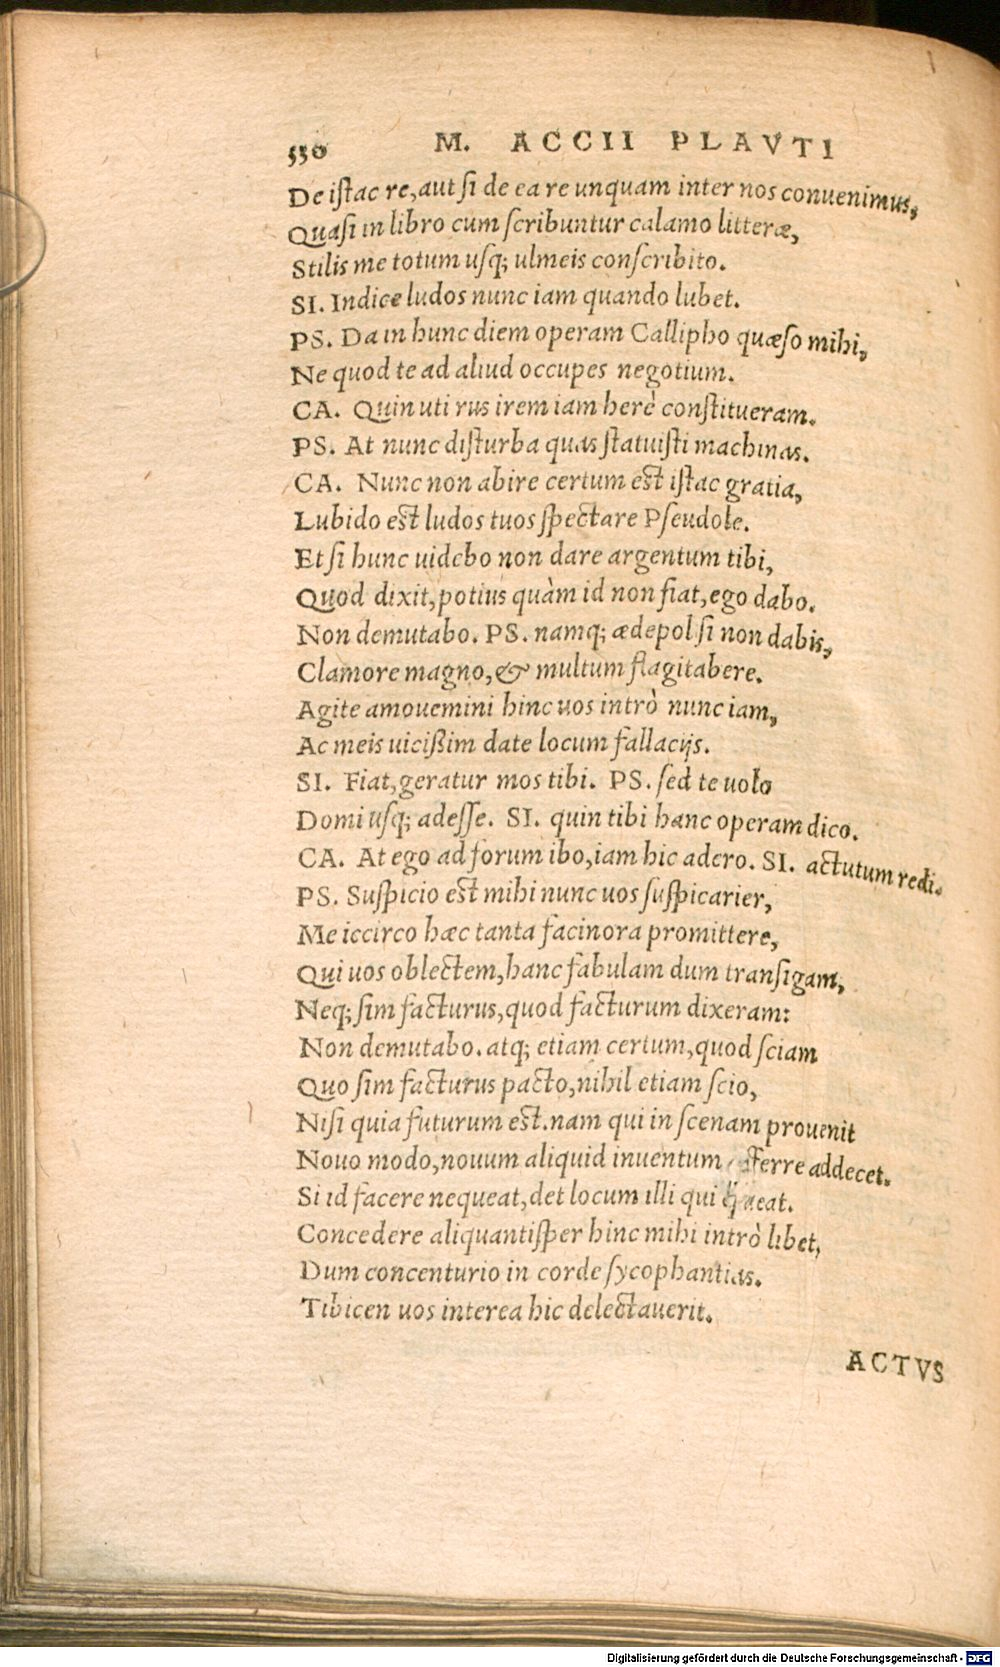 550 M. ACCII PLAVTI
De istac re, aut si de ea re unquam inter nos convenimus,
Quasi in libro cum scribuntur calamo litteræ,
Stilis me totum usq; ulmeis conscribito.
SI. Indice ludos nunc iam quando lubet.
PS. Da in hunc diem operam Callipho quæso mihi,
Ne quod te ad aliud occupes negotium.
CA. Quin uti rus irem iam herè constitueram.
PS. At nunc disturba quas statuisti machinas.
CA. Nunc non abire certum est istac gratia,
Lubido est ludos tuos spectare Pseudole.
Et si hunc uidebo non dare argentum tibi,
Quod dixit, potius quàm id non fiat, ego dabo.
Non demutabo. PS. namq; ædepol si non dabis,
Clamore magno, & multum flagitabere.
Agite amouemini hinc uos intrò nunc iam,
Ac meis uicißim date locum fallacijs.
SI. Fiat, geratur mos tibi. PS. sed te uolo
Domi usq; adesse. SI. quin tibi hanc operam dico.
CA. At ego ad forum ibo, iam hic adero. SI. actutum redi.
PS. Suspicio est mihi nunc uos suspicarier,
Me iccirco hæc tanta facinora promittere,
Qui uos oblectem, hanc fabulam dum transigam,
Neq; sim facturus, quod facturum dixeram:
Non demutabo. atq; etiam certum, quod sciam
Quo sim facturus pacto, nihil etiam scio,
Nisi quia futurum est. nam qui in scenam prouenit
Nouo modo, nouum aliquid inuentum adferre addecet.
Si id facere nequeat, det locum illi qui queat.
Concedere aliquantisper hinc mihi intrò libet,
Dum concenturio in corde sycophantias.
Tibicen uos interea hic delectauerit.
ACTVS
Digitalisierung gefördert durch die Deutsche Forschungsgemeinschaft - DFG